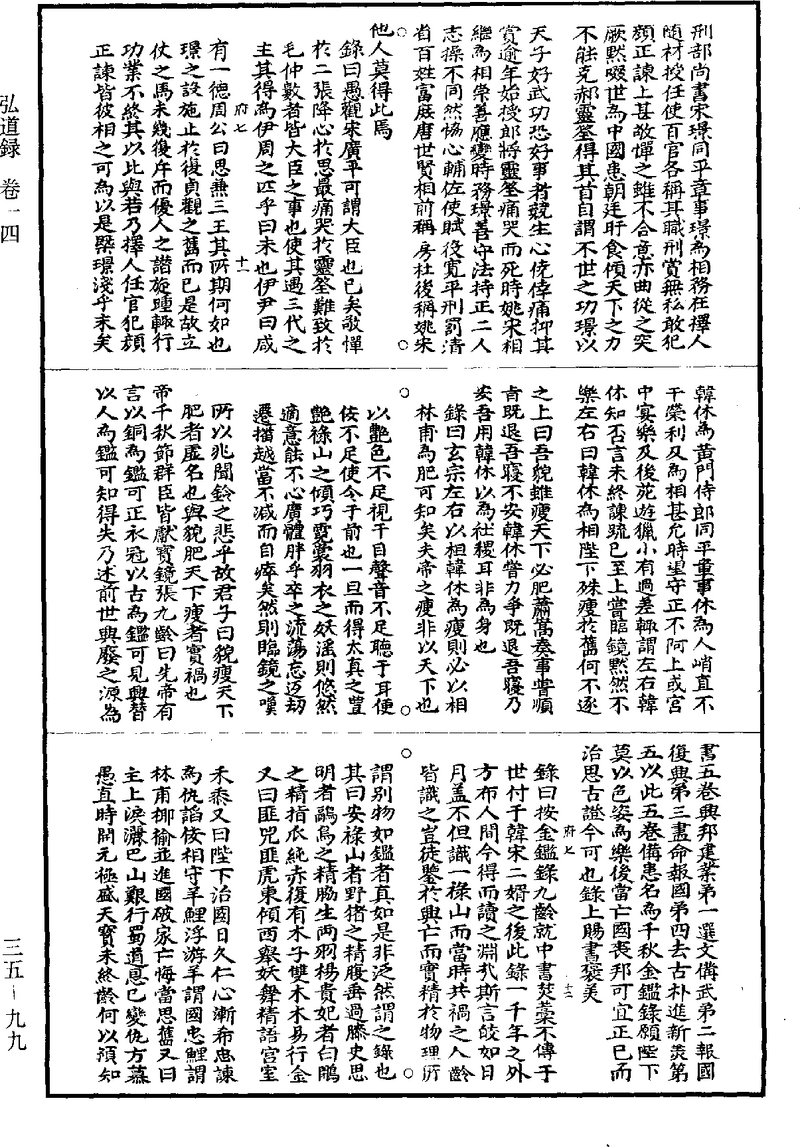 弘道録　卷一四
三五－九九
刑部尚書宋璟同平章事璟為相務在擇人
隨材授任使百官各稱其職刑賞無私敢犯
顏正諫上甚敬憚之雖不合意亦曲從之突
厥黙啜世為中國患朝廷旰食傾天下之力
不能克郝靈筌得其首自謂不世之功璟以
天子好武功恐好事者競生心僥倖痛抑其
賞逾年始授郎將靈筌痛哭而死時姚宋相
繼為相崇善應變時務璟善守法持正二人
志操不同然協心輔佐使賦役寬平刑罰清
省百姓富庶唐世賢相前稱房杜後稱姚宋
他人莫得此焉
錄曰愚觀宋廣平可謂大臣也已矣敬憚
於二張降心於思最痛哭於靈筌難致於
毛仲數者皆大臣之事也使其遇三代之
主其得為伊周之匹乎曰未也伊尹曰咸
府七
十一
有一德周公曰思兼三王其所期何如也
璟之設施止於復貞觀之舊而已是故立
仗之馬未幾復斥而優人之譖旋踵輙行
功業不終其以此與若乃擇人任官犯顏
正諫皆彼相之可為以是槩璟淺乎末矣
韓休為黃門侍郎同平章事休為人峭直不
干榮利及為相甚允時望守正不阿上或宮
中宴樂及後苑遊獵小有過差輙謂左右韓
休知否言未終諫疏已至上嘗臨鏡黙然不
樂左右曰韓休為相陛下殊瘦於舊何不逐
之上曰吾貌雖瘦天下必肥蕭嵩奏事嘗順
㫖既退吾寢不安韓休嘗力爭既退吾寢乃
安吾用韓休以為社稷耳非為身也
錄曰玄宗左右以相韓休為瘦則必以相
林甫為肥可知矣夫帝之瘦非以天下也
以艷色不足視于目聲音不足聴于耳便
佞不足使令于前也一旦而得太真之豐
艷祿山之傾巧霓裳羽衣之妖滛則悠然
適意能不心廣體胖乎卒之流蕩忘返劫
遷播越當不減而自瘁矣然則臨鏡之嘆
所以兆聞鈴之悲乎故君子曰貌瘦天下
肥者虛名也與貌肥天下瘦者實禍也
帝千秋節群臣皆獻寳鏡張九齡曰先帝有
言以銅為鑑可正衣冠以古為鑑可見興替
以人為鑑可知得失乃述前世興廢之源為
書五卷興邦建業第一選文偹武第二報國
復興第三盡命報國第四去古朴進新羙第
五以此五卷偹患名為千秋金鑑錄願陛下
莫以色姿為樂後當亡國䘮邦可宜正已而
治思古證今可也錄上賜書褒美
府七
十二
錄曰按金鑑錄九齡就中書焚藁不傳于
世付于韓宋二婿之後此錄一千年之外
方布人間今得而讀之淵㢤斯言皎如日
月盖不但識一祿山而當時共禍之人齡
皆識之豈徒鑒於興亡而實精於物理所
謂別物如鑑者真如是非泛然謂之錄也
其曰安祿山者野猪之精腹垂過膝史思
明者鷊鳥之精脇生两羽楊貴妃者白鵰
之精指爪純赤復有木子雙木木易行金
又曰匪兕匪虎東傾西舉妖舞精語宫室
禾黍又曰陛下治國日久仁心漸希忠諫
為仇謟佞相守羊鯉浮游羊謂國忠鯉謂
林甫揶揄並進國破家亡悔當思舊又曰
主上淚灑巴山艱行蜀道恩已變仇方慕
愚直時開元極盛天寳未終齡何以預知